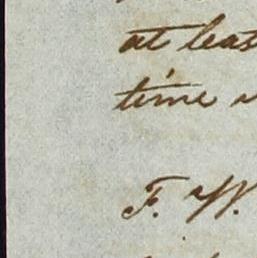 at leas
time
F. W.